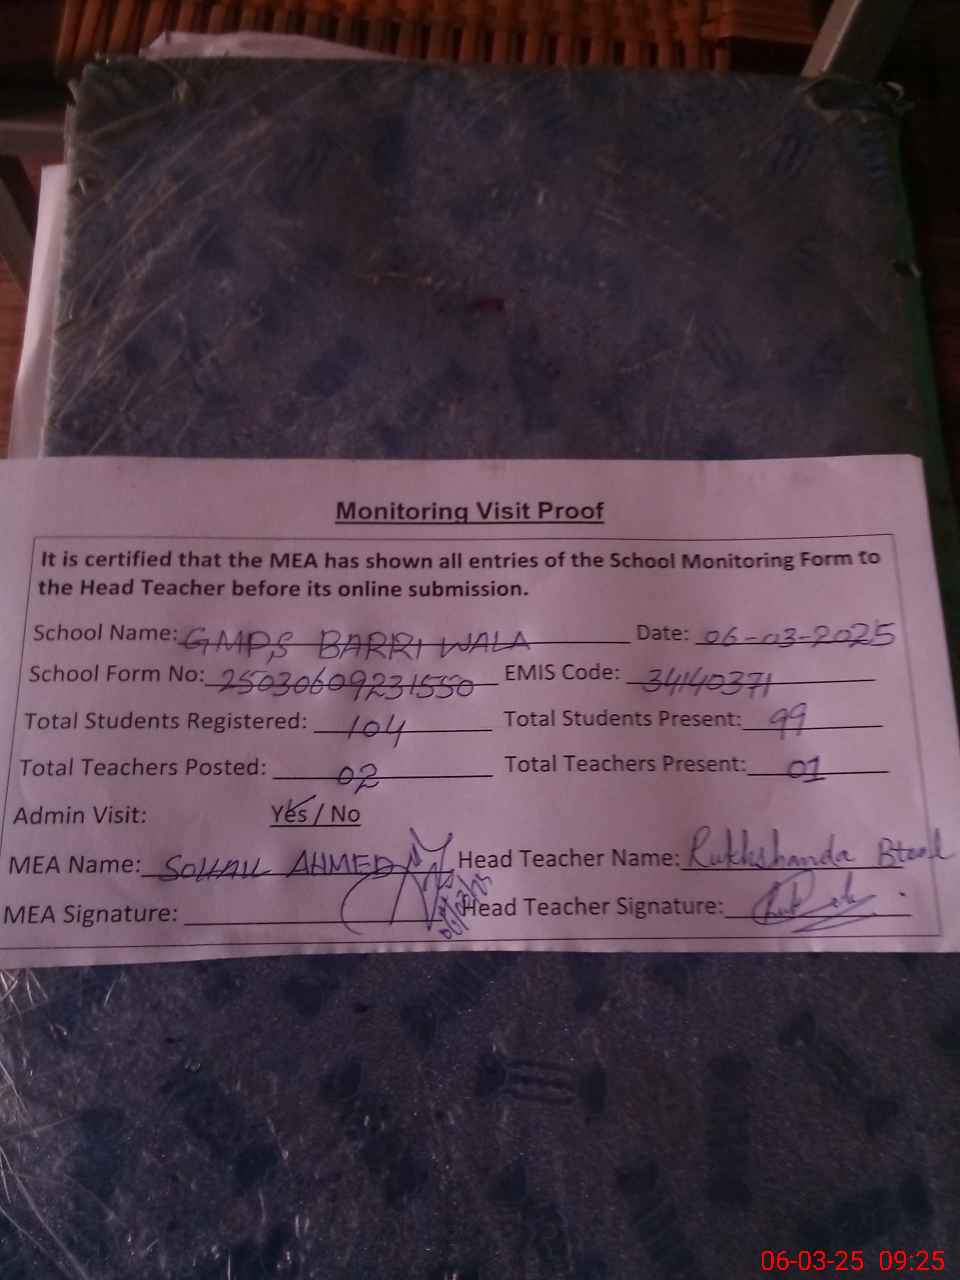 Monitoring Visit Proof
It is certified that the MEA has shown all entries of the School Monitoring Form to
the Head Teacher before its online submission.
School Name: GMPS BARRI WALA Date: 06-03-2025
School Form No: 25030609231550 EMIS Code: 34140371
Total Students Registered: 104 Total Students Present: 99
Total Teachers Posted: 02 Total Teachers Present: 01
Admin Visit: Yes / No
MEA Name: SOHAIL AHMED Head Teacher Name: Rukhshanda
MEA Signature: 06/03/25 Head Teacher Signature:
06-03-25 09:25